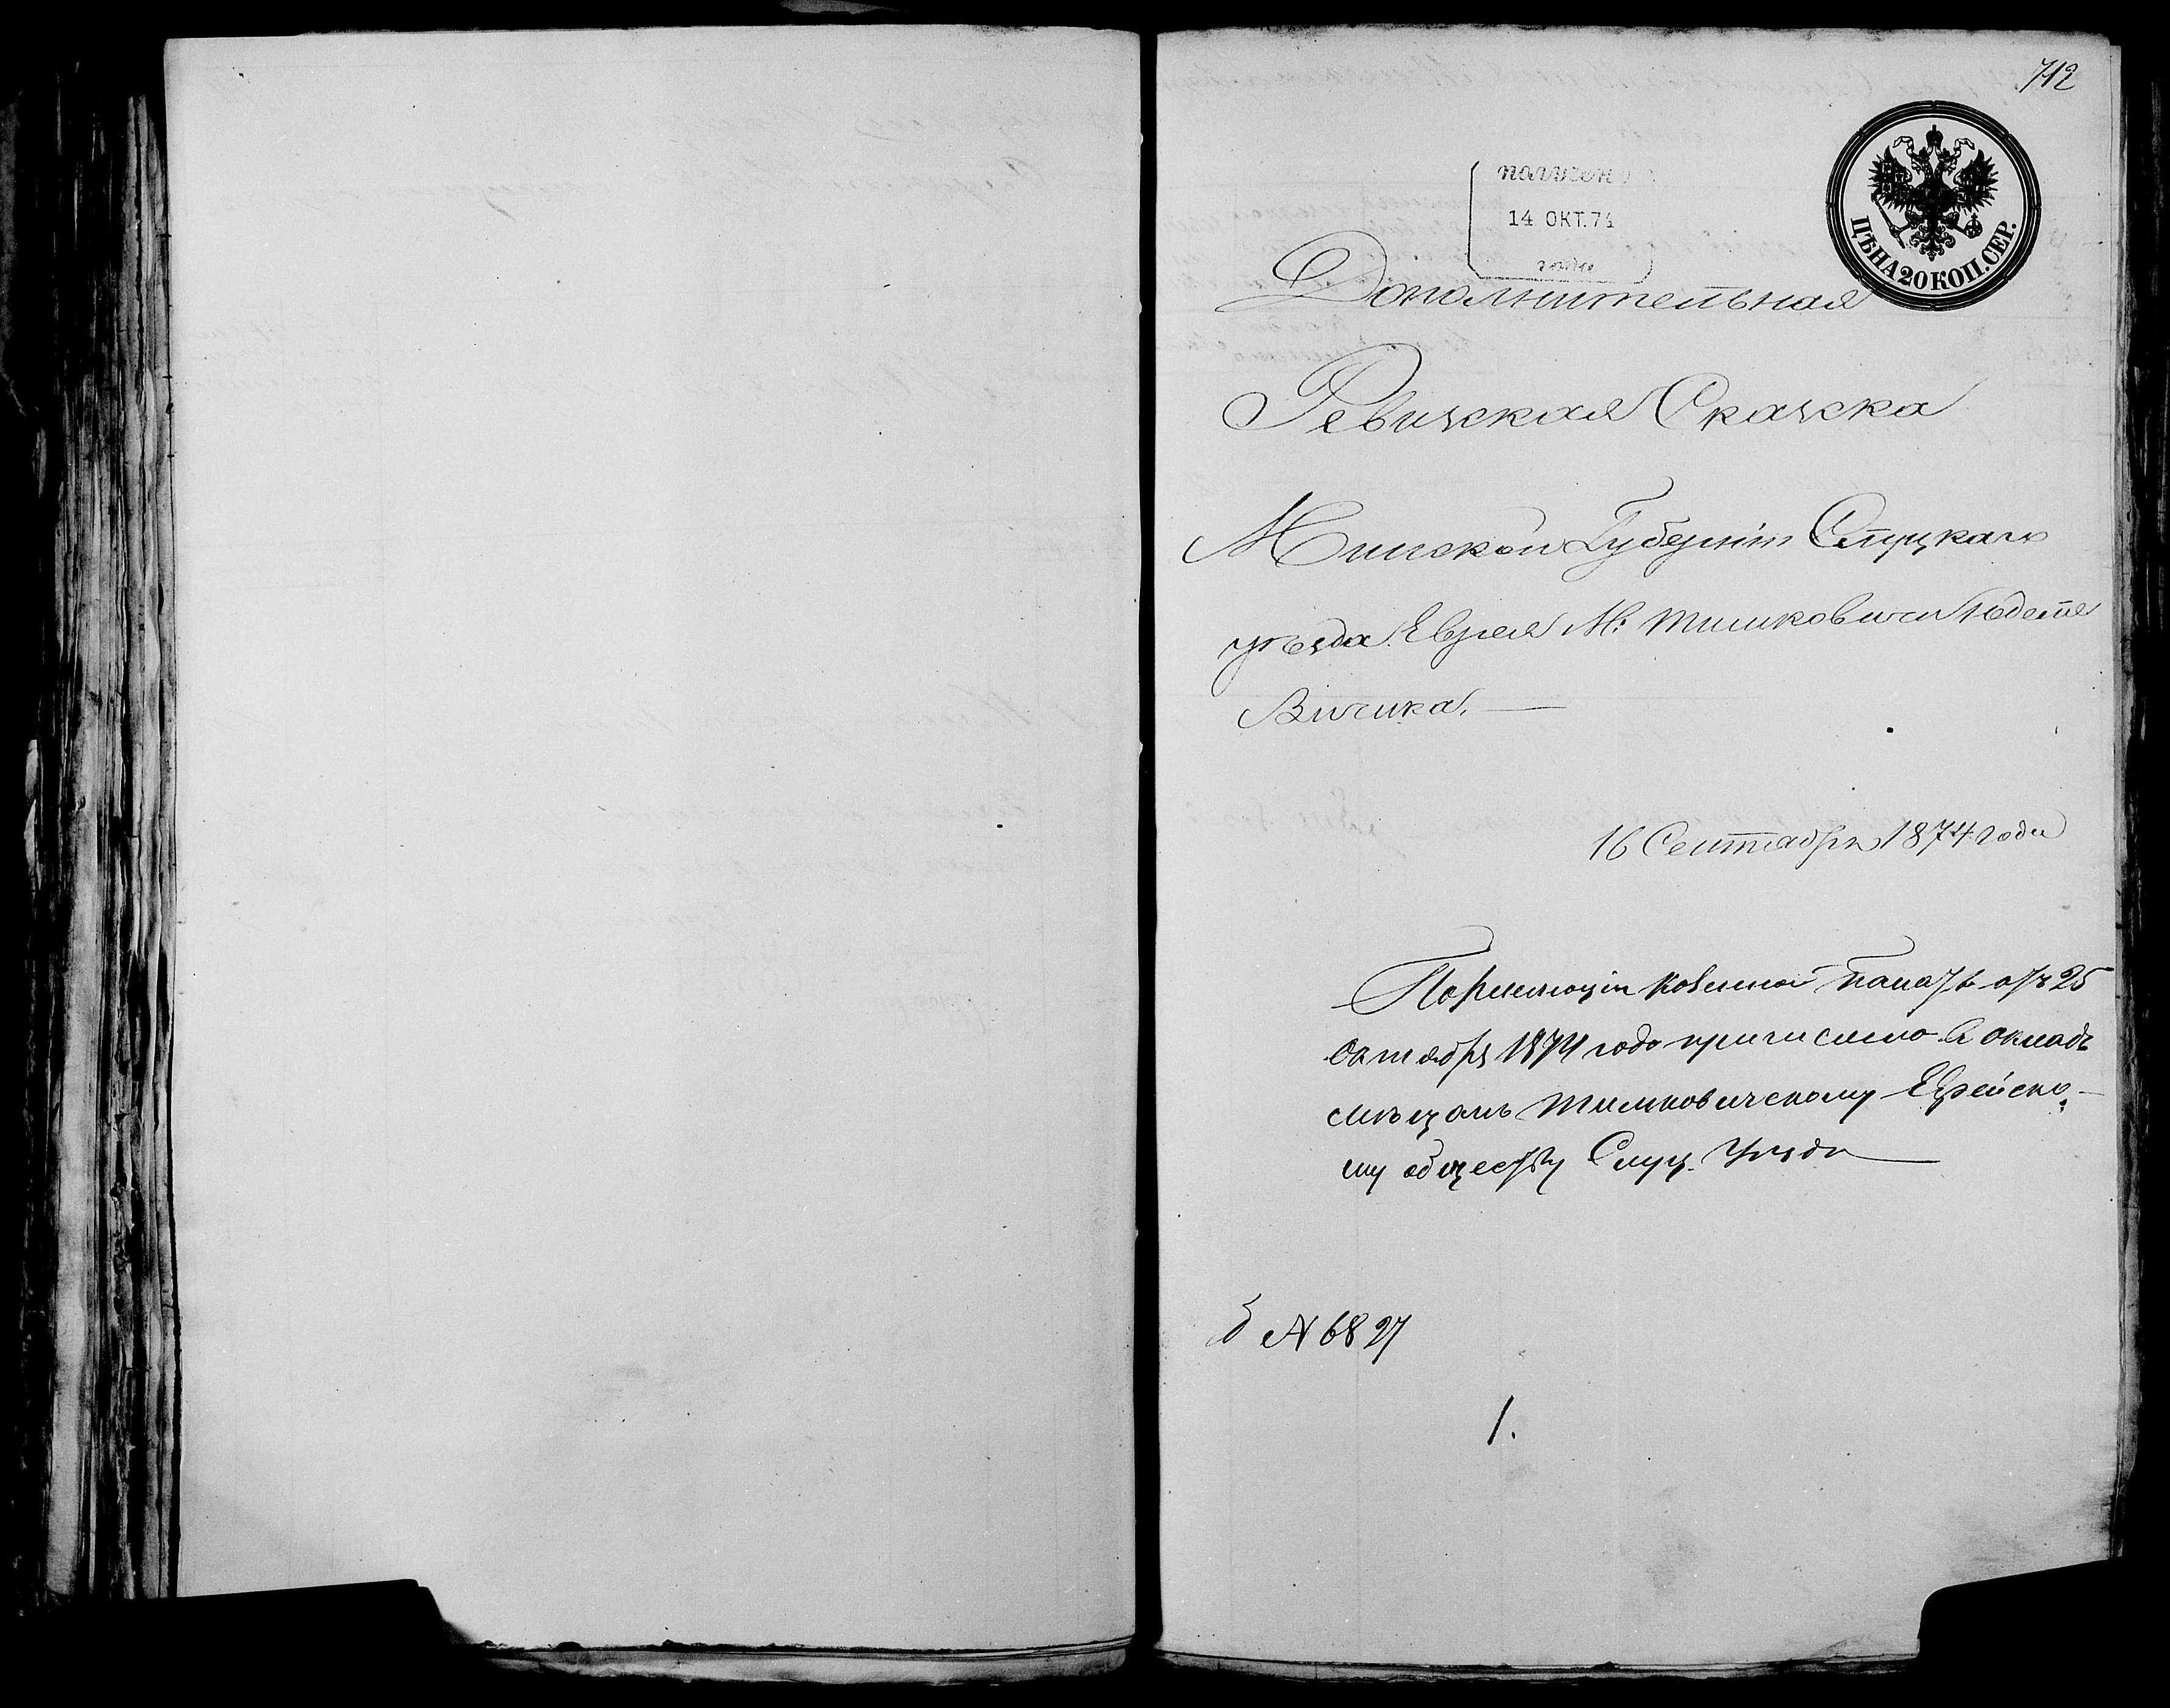 712
ЦѢНА 20 КОП. СЕР.
получен
14 ОКТ. 74
года
Дополнительная
Ревизская Сказка
Минской Губерніи Слуцкаго
уѣзда Еврея М: Тимковичи Юделя
16 Сентября 1874 года
Казенной Палаты отъ 25
Октября 1874 года причислено въ окладъ
Тимковичскому Еврейско-
му обществу Слуц. Уѣзда
№ 6827
1.